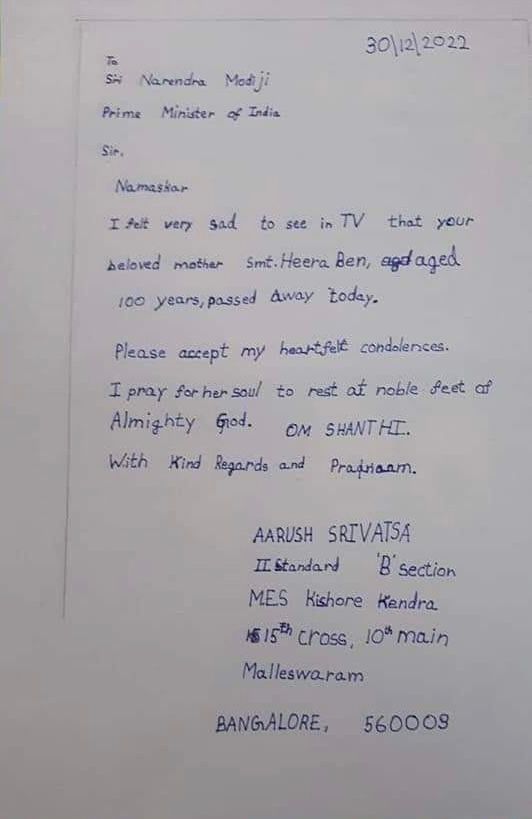 30/12/2022
To
Sri Narendra Modiji
Prime Minister of India
Sir,
Namaskar
I felt very sad to see in TV that your
beloved mother Smt. Heera Ben, aged
100 years, passed Away today.
Please accept my heartfelt condolences.
I pray for her soul to rest at noble feet of
Almighty God. OM SHANTHI.
With Kind Regards and Pranaam.
AARUSH SRIVATSA
II Standard 'B' section
MES Kishore Kendra
15th cross, 10th main
Malleswaram
BANGALORE, 560003